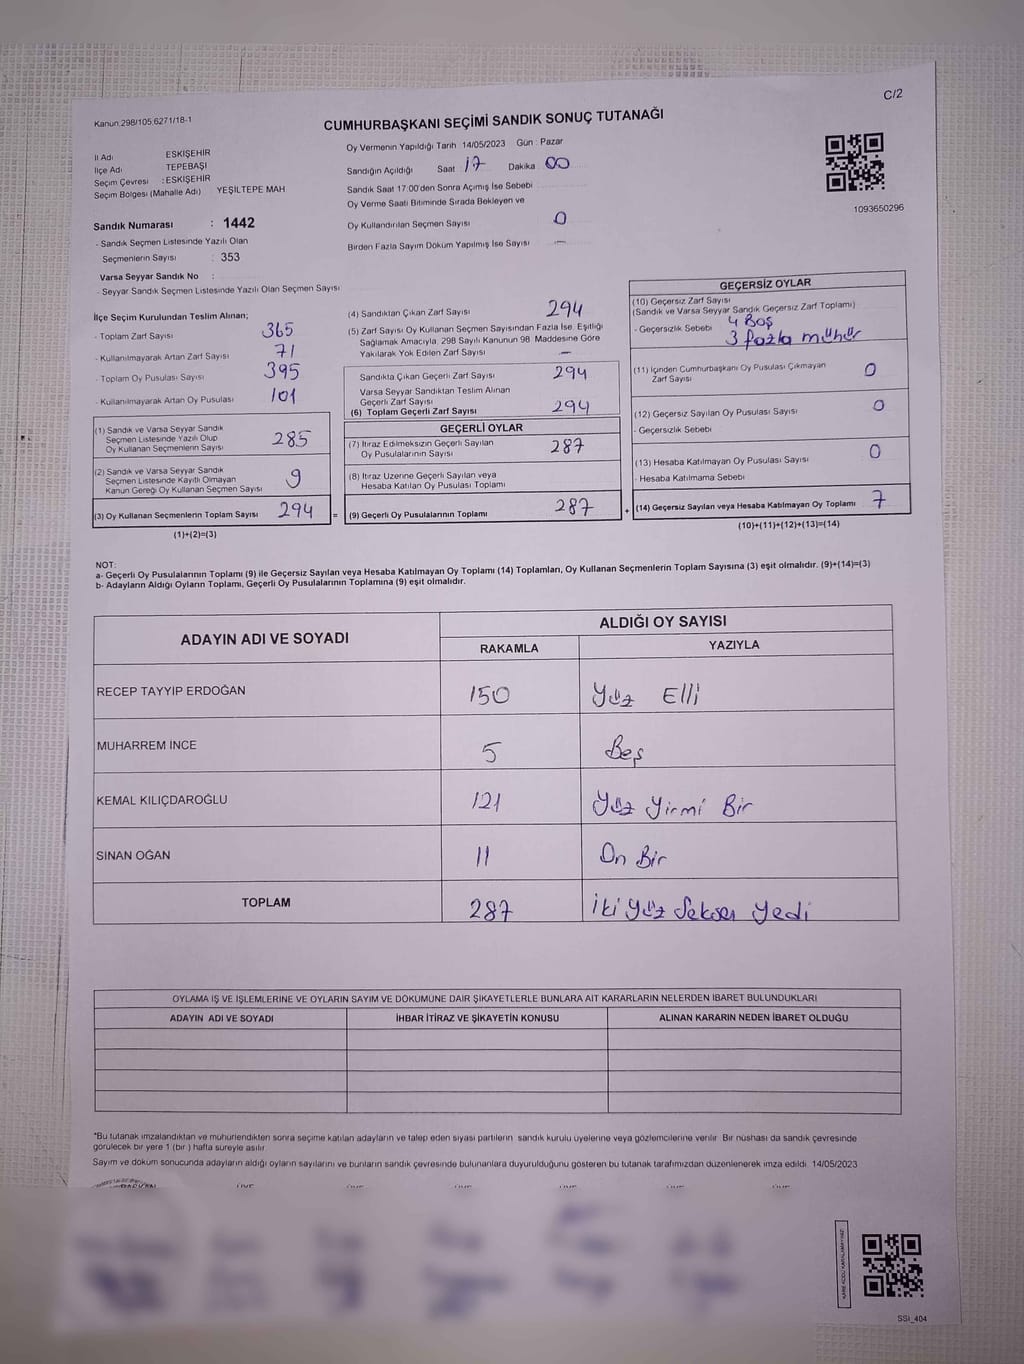 C/2
Kanun 298/105,6271/18-1
CUMHURBAŞKANI SEÇİMİ SANDIK SONUÇ TUTANAĞI
İl Adı ESKİŞEHİR
İlçe Adı : TEPEBAŞI
Seçim Çevresi : ESKİŞEHİR
Seçim Bölgesi (Mahalle Adı) YEŞİLTEPE MAH
Sandık Numarası : 1442
- Sandık Seçmen Listesinde Yazılı Olan
Seçmenlerin Sayısı : 353
Varsa Seyyar Sandık No :
- Seyyar Sandık Seçmen Listesinde Yazılı Olan Seçmen Sayısı
Oy Vermenin Yapıldığı Tarih 14/05/2023 Gün : Pazar
Sandığın Açıldığı Saat 17 Dakika 00
Sandık Saat 17:00'den Sonra Açımış İse Sebebi
Oy Verme Saati Bitiminde Sırada Bekleyen ve
Oy Kullandırılan Seçmen Sayısı 0
Birden Fazla Sayım Döküm Yapılmış İse Sayısı —
1093650296
İlçe Seçim Kurulundan Teslim Alınan;
- Toplam Zarf Sayısı 365
- Kullanılmayarak Artan Zarf Sayısı 71
- Toplam Oy Pusulası Sayısı 395
- Kullanılmayarak Artan Oy Pusulası 101
(1) Sandık ve Varsa Seyyar Sandık
Seçmen Listesinde Yazılı Olup
Oy Kullanan Seçmenlerin Sayısı 285
(2) Sandık ve Varsa Seyyar Sandık
Seçmen Listesinde Kayıtlı Olmayan
Kanun Gereği Oy Kullanan Seçmen Sayısı 9
(3) Oy Kullanan Seçmenlerin Toplam Sayısı 294 =
(1)+(2)=(3)
(4) Sandıktan Çıkan Zarf Sayısı 294
(5) Zarf Sayısı Oy Kullanan Seçmen Sayısından Fazla İse, Eşitliği
Sağlamak Amacıyla, 298 Sayılı Kanunun 98. Maddesine Göre
Yakılarak Yok Edilen Zarf Sayısı —
Sandıkta Çıkan Geçerli Zarf Sayısı 294
Varsa Seyyar Sandıktan Teslim Alınan
Geçerli Zarf Sayısı
(6) Toplam Geçerli Zarf Sayısı 294
GEÇERLİ OYLAR
(7) İtiraz Edilmeksizin Geçerli Sayılan
Oy Pusulalarının Sayısı 287
(8) İtiraz Üzerine Geçerli Sayılan veya
Hesaba Katılan Oy Pusulası Toplamı
(9) Geçerli Oy Pusulalarının Toplamı 287 +
GEÇERSİZ OYLAR
(10) Geçersiz Zarf Sayısı
(Sandık ve Varsa Seyyar Sandık Geçersiz Zarf Toplamı)
- Geçersizlik Sebebi 4 Boş
3 fazla mühür
(11) İçinden Cumhurbaşkanı Oy Pusulası Çıkmayan
Zarf Sayısı 0
(12) Geçersiz Sayılan Oy Pusulası Sayısı 0
- Geçersizlik Sebebi
(13) Hesaba Katılmayan Oy Pusulası Sayısı 0
- Hesaba Katılmama Sebebi
(14) Geçersiz Sayılan veya Hesaba Katılmayan Oy Toplamı 7
(10)+(11)+(12)+(13)=(14)
NOT:
a- Geçerli Oy Pusulalarının Toplamı (9) ile Geçersiz Sayılan veya Hesaba Katılmayan Oy Toplamı (14) Toplamları, Oy Kullanan Seçmenlerin Toplam Sayısına (3) eşit olmalıdır. (9)+(14)=(3)
b- Adayların Aldığı Oyların Toplamı, Geçerli Oy Pusulalarının Toplamına (9) eşit olmalıdır.
ADAYIN ADI VE SOYADI ALDIĞI OY SAYISI
RAKAMLA YAZIYLA
RECEP TAYYIP ERDOĞAN 150 Yüz Elli
MUHARREM İNCE 5 Beş
KEMAL KILIÇDAROĞLU 121 Yüz Yirmi Bir
SİNAN OĞAN 11 On Bir
TOPLAM 287 iki yüz Seksen Yedi
OYLAMA İŞ VE İŞLEMLERİNE VE OYLARIN SAYIM VE DÖKÜMÜNE DAİR ŞİKAYETLERLE BUNLARA AİT KARARLARIN NELERDEN İBARET BULUNDUKLARI
ADAYIN ADI VE SOYADI İHBAR İTİRAZ VE ŞİKAYETİN KONUSU ALINAN KARARIN NEDEN İBARET OLDUĞU
*Bu tutanak imzalandıktan ve mühürlendikten sonra seçime katılan adayların ve talep eden siyasi partilerin sandık kurulu üyelerine veya gözlemcilerine verilir. Bir nüshası da sandık çevresinde
görülecek bir yere 1 (bir ) hafta süreyle asılır.
Sayım ve döküm sonucunda adayların aldığı oyların sayılarını ve bunların sandık çevresinde bulunanlara duyurulduğunu gösteren bu tutanak tarafımızdan düzenlenerek imza edildi. 14/05/2023
KARE KODU KARALAMAYINIZ!
SSİ_404